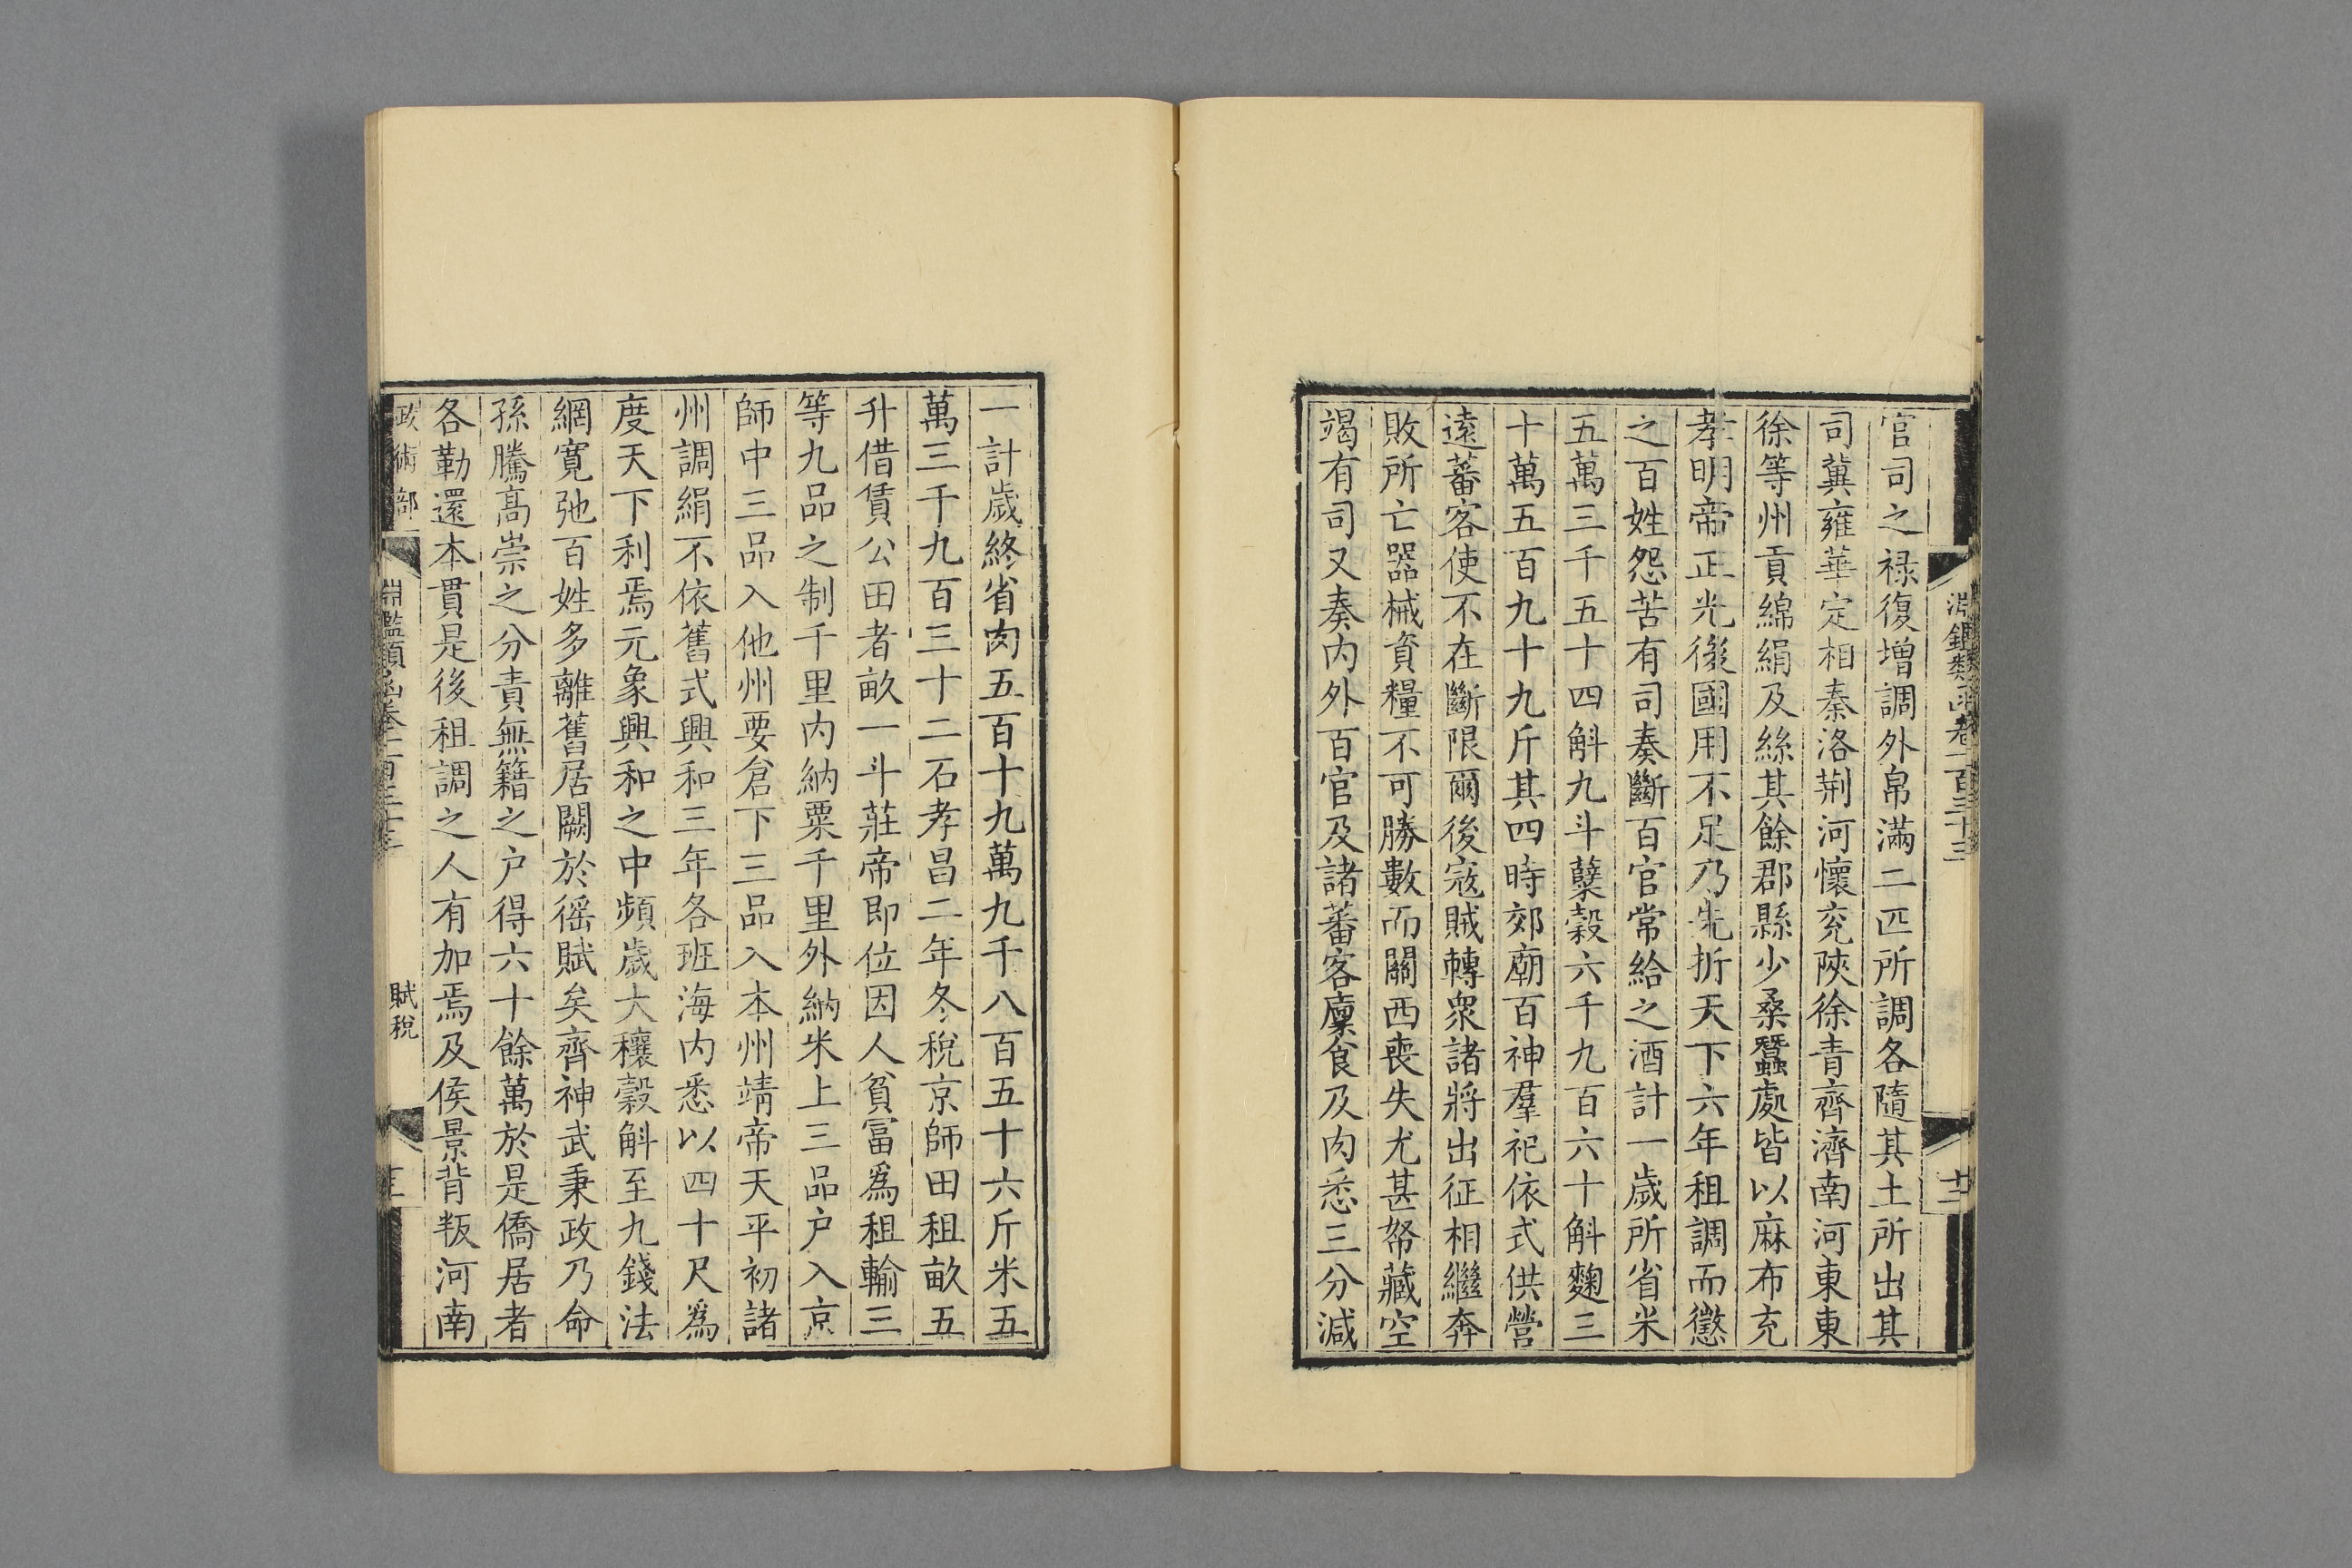 淵鑑類函卷一百三十三
官司之禄復增調外帛滿二匹所調各隨其土所出其
司冀雍華定相秦洛荆河懷兖陜徐青齊濟南河東東
徐等州貢綿絹及絲其餘郡縣少桑蠶處皆以麻布充
孝明帝正光後國用不足乃先折天下六年租調而懲
之百姓怨苦有司奏斷百官常給之酒計一歲所省米
五萬三千五十四斛九斗糵穀六千九百六十斛麴三
十萬五百九十九斤其四時郊廟百神羣祀依式供營
遠蕃客使不在斷限爾後寇賊轉衆諸將出征相繼奔
敗所亡器械資糧不可勝數而關西喪失尤甚帑藏空
竭有司又奏内外百官及諸蕃客廩食及肉悉三分減
一計歲終省肉五百十九萬九千八百五十六斤米五
萬三千九百三十二石孝昌二年冬稅京師田租畝五
升借賃公田者畝一斗莊帝即位因人貧富爲租輸三
等九品之制千里内納粟千里外納米上三品户入京
師中三品入他州要倉下三品入本州靖帝天平初諸
州調絹不依舊式興和三年各班海内悉以四十尺爲
度天下利焉元象興和之中頻歲大穰穀斛至九錢法
網寛弛百姓多離舊居闕於徭賦矣齊神武秉政乃命
孫騰高崇之分責無籍之户得六十餘萬於是僑居者
各勒還本貫是後租調之人有加焉及侯景背叛河南
政術部
淵鑑類函卷一百三十三
賦稅